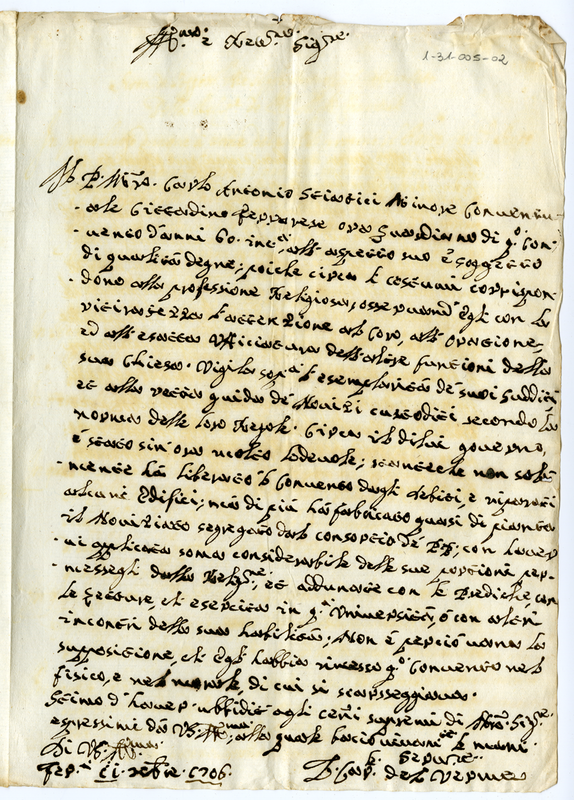 Ill.mo e Rev.mo Sig.re
1-31-005-02
Il P. M.ro Carlo Antonio Minore Conventu-
ale Cittadino Ferrarese ora Guardiano di q.o Con-
uento d'anni 60. in c.a, all'aspetto suo è soggetto
di qualità degne; poiche circa i costumi corrispon-
dono alla professione Religiosa, osseruando Egli con la
l'attenzione al Coro, all'oratione,
ed all'esatta Vfficiatura dell'altre funtioni della
sua Chiesa. Vigila sop.a l'esemplarità de suoi sudditi
et alla retta guida de Nouizi custoditi secondo la
norma delle loro Regole. Circa il di lui gouerno,
è stato sin'ora molto lodeuole, mentre che non sola-
mente hà liberato il Conuento dagli debiti, e riparati
alcuni Edifici; mà di più hà fabricato quasi di pianta
il Nouiziato segregato dal consortio de PP; con hauer-
ui aplicata soma considerabile delle sue portioni per-
messegli dalla Relig.ne, et addunate con le Prediche, con
le letture, ch'esercita in q.a Vniuersità, ò con altri
incontri della sua habilità; Non è perciò uana la
supositione, ch'Egli habbia rimesso q.o Conuento nel
fisico, e nel morale, di cui si scarseggiaua.
Stimo d'hauer ubbidito agli cenni supremi di
espressimi da VS. Ill.ma, alla quale bacio le mani.
Di VS. Ill.ma
Fer.a 1706.